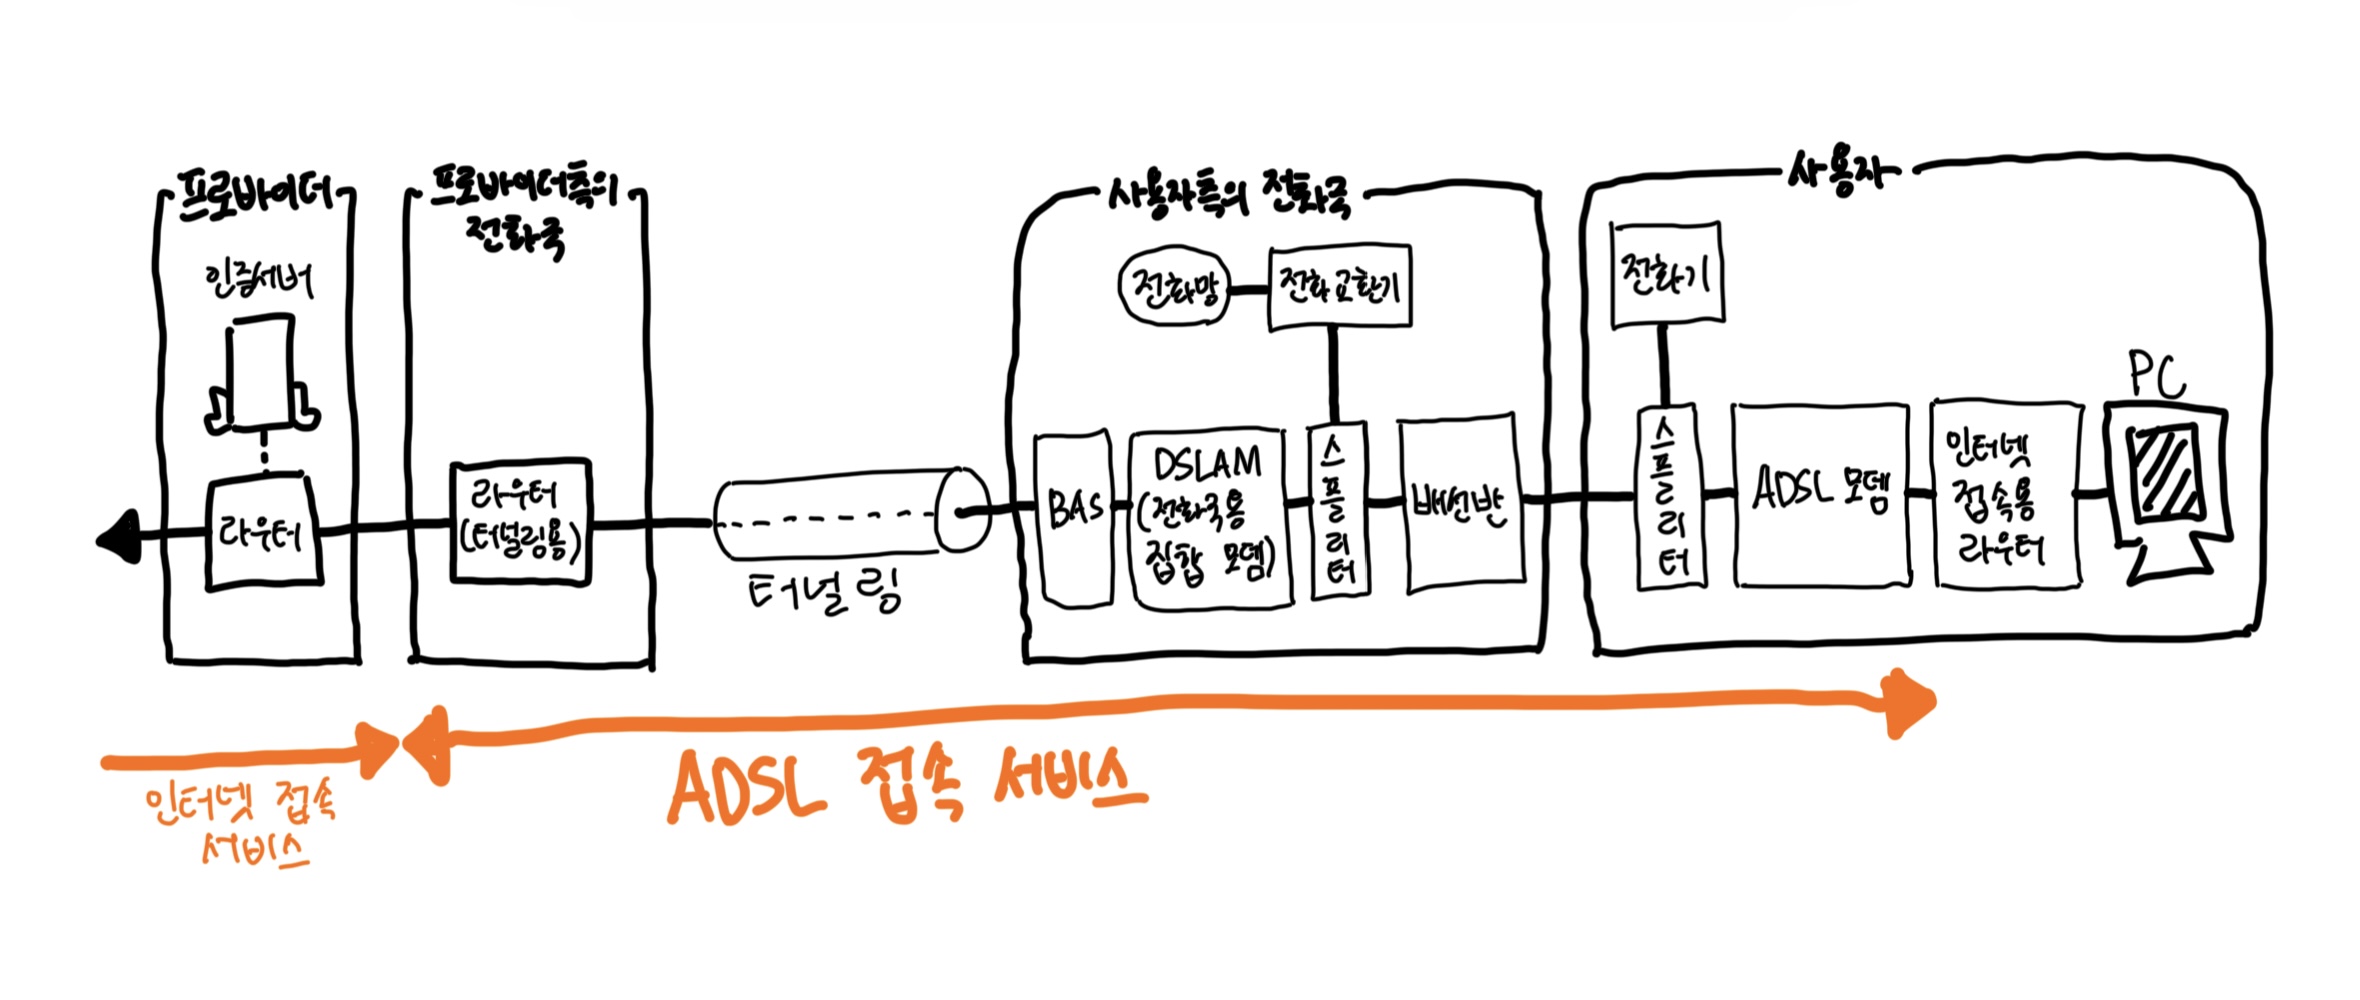 프로바이더
인증서버
라우터
프로바이더측의
전화국
라우터
(터널링용)
터널링
사용자측의 전화국
전화망
전화교환기
BAS
DSLAM
(전화국용
집합 모뎀)
스플리터
배선반
사용자
전화기
스플리터
ADSL 모뎀
인터넷
접속용
라우터
PC
인터넷 접속
서비스
ADSL 접속 서비스